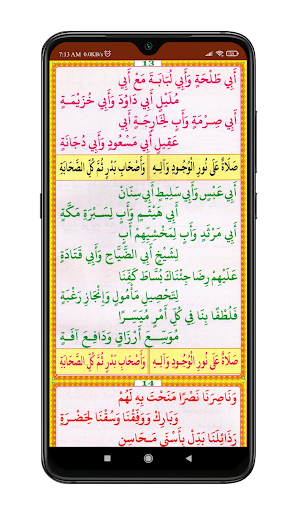 7:13 AM 0.0KB/s
13
أَبِي طَلْحَةٍ وَأَبِي لُبَابَـةَ مَعْ أَبِي
مُلَيْلٍ أَبِي دَاوُدَ وَأَبِي خُزَيْمَةِ
أَبِي صِرْمَةٍ وَأَبٍ لِخَارِجَةٍ أَبِي
عَقِيلٍ أَبِي مَسْعُودٍ وَأَبِي دُجَانَةِ
صَلَاةٌ عَلَى نُورِ الْوُجُودِ وَآلِـهِ وَأَصْحَابِ بَدْرٍ ثُمَّ كُلِّ الصَّحَابَةِ
أَبِي عَبْسٍ وَأَبِي سَلِيطٍ أَبِي سِنَانٍ
أَبِي هَيْثَـمٍ وَأَبٍ لِسَـبْـرَةِ مَكَّةِ
أَبِي مَرْثَدٍ وَأَبٍ لِمَخْشِيِّهِمْ أَبٍ
لِشَيْخٍ أَبِي الضَّيَّاحِ وَأَبِي قَتَادَةِ
عَلَيْهِمْ رِضَا جِئْنَاكَ بُسَّاطَ كَفِّنَا
لِتَحْصِيلِ مَأْمُولٍ وَإِنْجَازِ رَغْبَةِ
فَلُطْفًا بِنَا فِي كُلِّ أَمْرٍ مُيَسِّـرًا
مُوَسِّـعَ أَرْزَاقٍ وَدَافِـعَ آفَـةِ
صَلَاةٌ عَلَى نُورِ الْوُجُودِ وَآلِـهِ وَأَصْحَابِ بَدْرٍ ثُمَّ كُلِّ الصَّحَابَةِ
14
وَنَاصِرَنَا نَصْرًا مَنَحْتَ بِهِ لَهُمْ
وَبَارِكْ وَوَفِّقْنَا وَسُقْنَا لِحَضْرَةِ
رَذَائِلَنَا بَدِّلْ بِأَسْنَى مَحَاسِنٍ